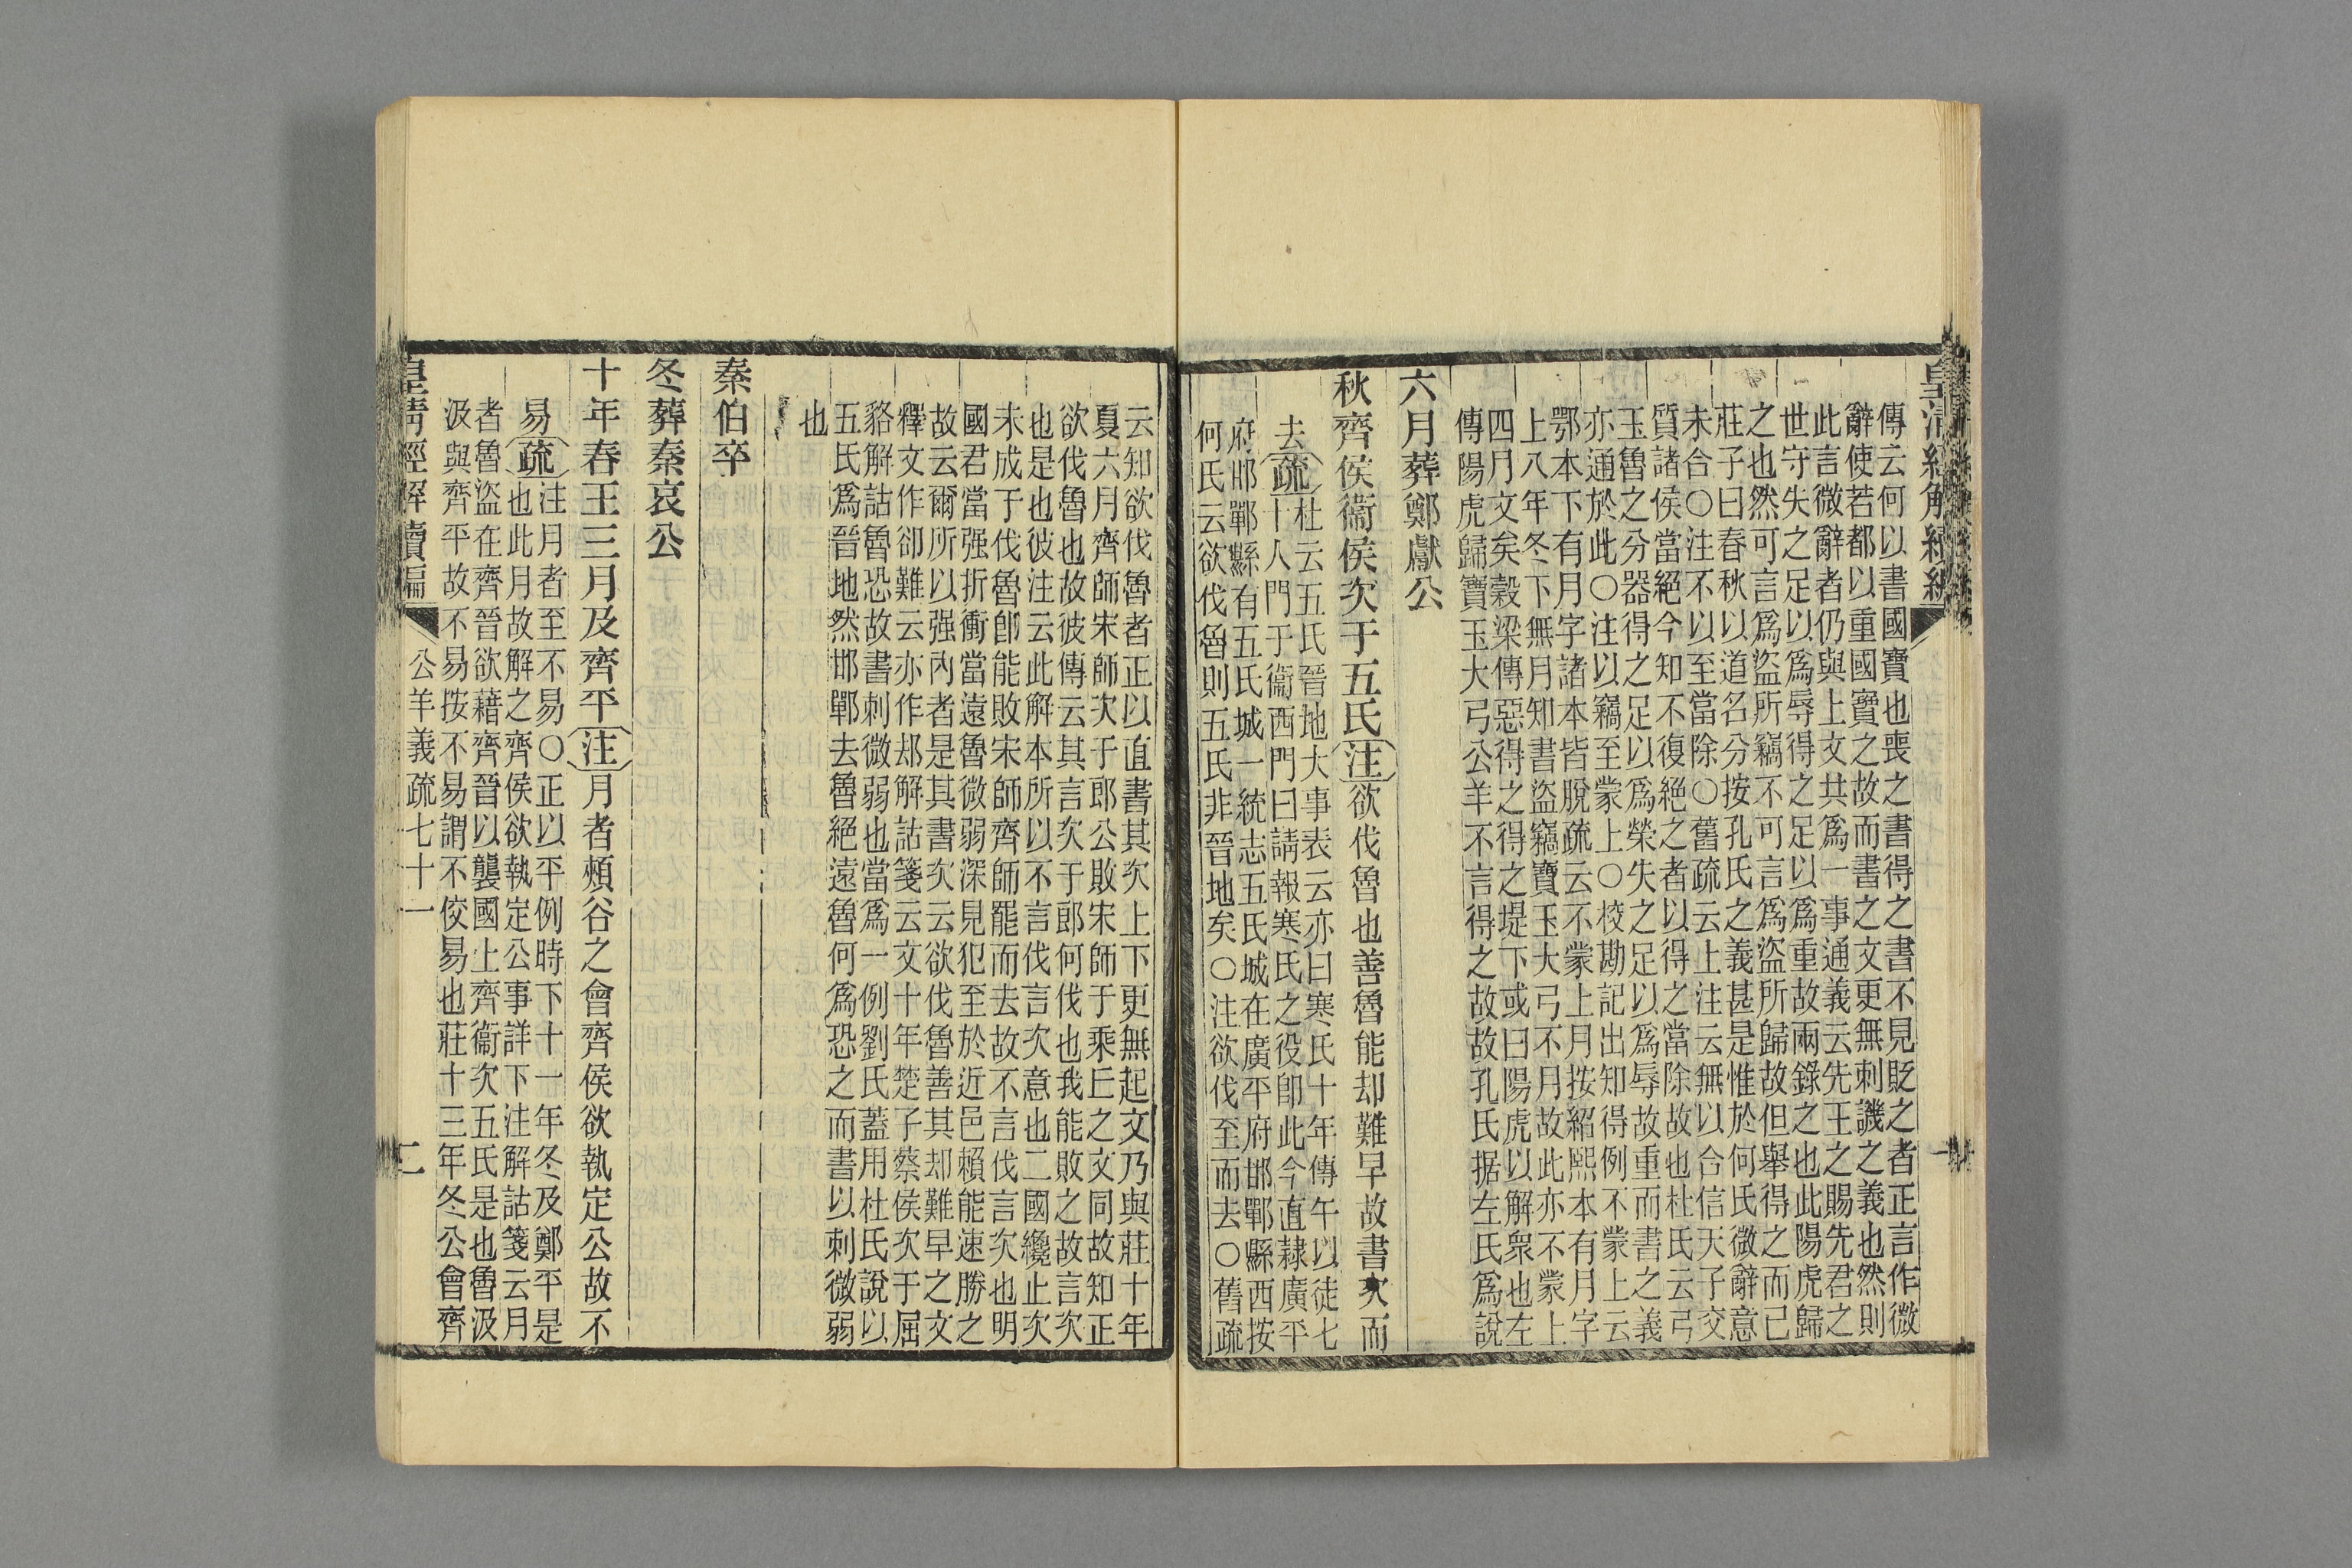 皇清經解續編
傳云何以書國寶也喪之書得之書不見貶之者正言作微
辭使若都以重國寶之故而書之文更無刺譏之義也然則
此言微辭者仍與上文共爲一事通義云先王之賜先君之
世守失之足以爲辱得之足以爲重故兩錄之也此陽虎歸
之也然可言爲盜所竊不可言爲盜所歸故但舉得之而已
莊子曰春秋以道名分按孔氏之義甚是惟於何氏微辭意
未合○注不以至當除○舊疏云上注云無以合信天子交
質諸侯當絕今知不復絕之者以得之當除故也杜氏云弓
玉魯之分器得之足以爲榮失之足以爲辱故重而書之義
亦通於此○注以竊至蒙上○校勘記出知得例不蒙上云
鄂本下有月字諸本皆脫疏云不蒙上月按紹熙本有月字
上八年冬下無月知書盜竊寶玉大弓不月故此亦不蒙上
四月文矣穀梁傳惡得之得之堤下或曰陽虎以解衆也左
傳陽虎歸寶玉大弓公羊不言得之故故孔氏据左氏爲說
六月葬鄭獻公
秋齊侯衞侯次于五氏注欲伐魯也善魯能却難早故書次而
去疏杜云五氏晉地大事表云亦曰寒氏十年傳午以徒七
十人門于衞西門曰請報寒氏之役卽此今直隸廣平
府邯鄲縣有五氏城一統志五氏城在廣平府邯鄲縣西按
何氏云欲伐魯則五氏非晉地矣○注欲伐至而去○舊疏
云知欲伐魯者正以直書其次上下更無起文乃與莊十年
夏六月齊師宋師次于郎公敗宋師于乘丘之文同故知正
欲伐魯也故彼傳云其言次于郎何伐也我能敗之故言次
也是也彼注云此解本所以不言伐言次意也二國纔止次
未成于伐魯卽能敗宋師齊師罷而去故不言伐言次也明
國君當强折衝當遠魯微弱深見犯至於近邑賴能速勝之
故云爾所以强內者是其書次云欲伐魯善其却難早之文
釋文作卻難云亦作却解詁箋云文十年楚子蔡侯次于屈
貉解詁魯恐故書刺微弱也當爲一例劉氏蓋用杜氏說以
五氏爲晉地然邯鄲去魯絕遠魯何爲恐之而書以刺微弱
也
秦伯卒
冬葬秦哀公
十年春王三月及齊平注月者頰谷之會齊侯欲執定公故不
易疏注月者至不易○正以平例時下十一年冬及鄭平是
也此月故解之齊侯欲執定公事詳下注解詁箋云月
者魯盜在齊晉欲藉齊晉以襲國上齊衞次五氏是也魯汲
汲與齊平故不易按不易謂不佼易也莊十三年冬公會齊
皇清經解續編 公羊義疏七十一 二